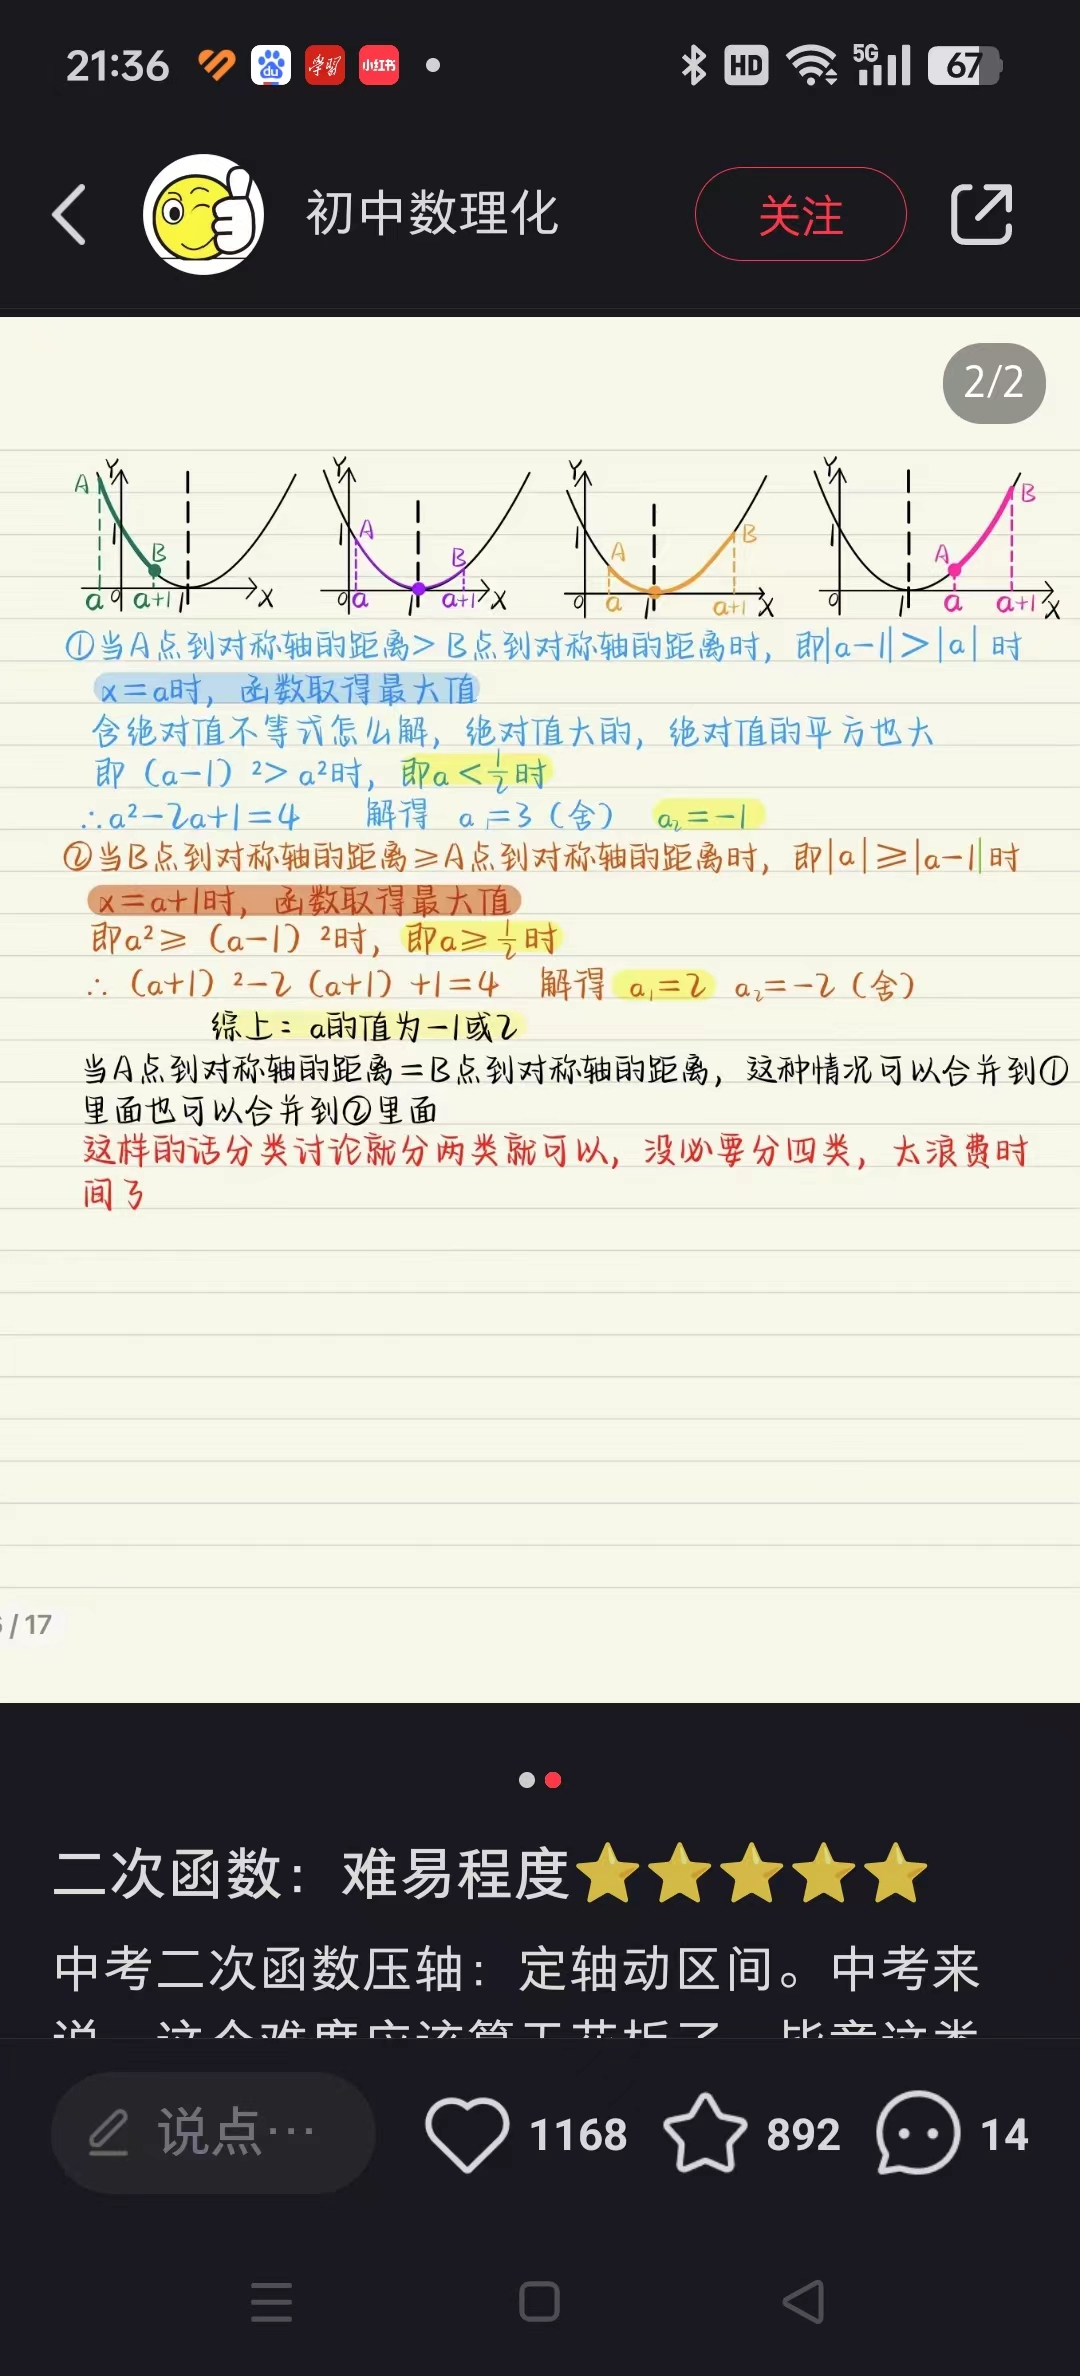 21:36
du
学习
小红书
HD
5G
67
初中数理化
关注
2/2
A Y B a O a+1 1 X
Y 1 A B O a 1 a+1 X
Y 1 A B O a 1 a+1 X
Y 1 A B O 1 a a+1 X
①当A点到对称轴的距离>B点到对称轴的距离时，即|a-1|>|a|时
x=a时，函数取得最大值
含绝对值不等式怎么解，绝对值大的，绝对值的平方也大
即（a-1）²>a²时，即a<1/2时
∴a²-2a+1=4 解得 a₁=3（舍） a₂=-1
②当B点到对称轴的距离≥A点到对称轴的距离时，即|a|≥|a-1|时
x=a+1时，函数取得最大值
即a²≥（a-1）²时，即a≥1/2时
∴（a+1）²-2（a+1）+1=4 解得 a₁=2 a₂=-2（舍）
综上：a的值为-1或2
当A点到对称轴的距离=B点到对称轴的距离，这种情况可以合并到①
里面也可以合并到②里面
这样的话分类讨论就分两类就可以，没必要分四类，太浪费时
间了
/17
二次函数：难易程度⭐⭐⭐⭐⭐
中考二次函数压轴：定轴动区间。中考来
说点…
1168
892
14